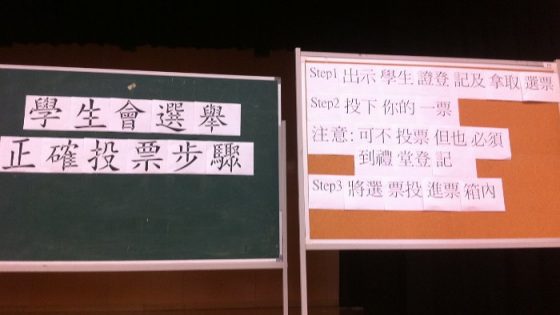 學生會選舉
正確投票步驟
Step1 出示學生證登記及拿取選票
Step2 投下你的一票
注意:可不投票但也必須
到禮堂登記
Step3 將選票投進票箱內